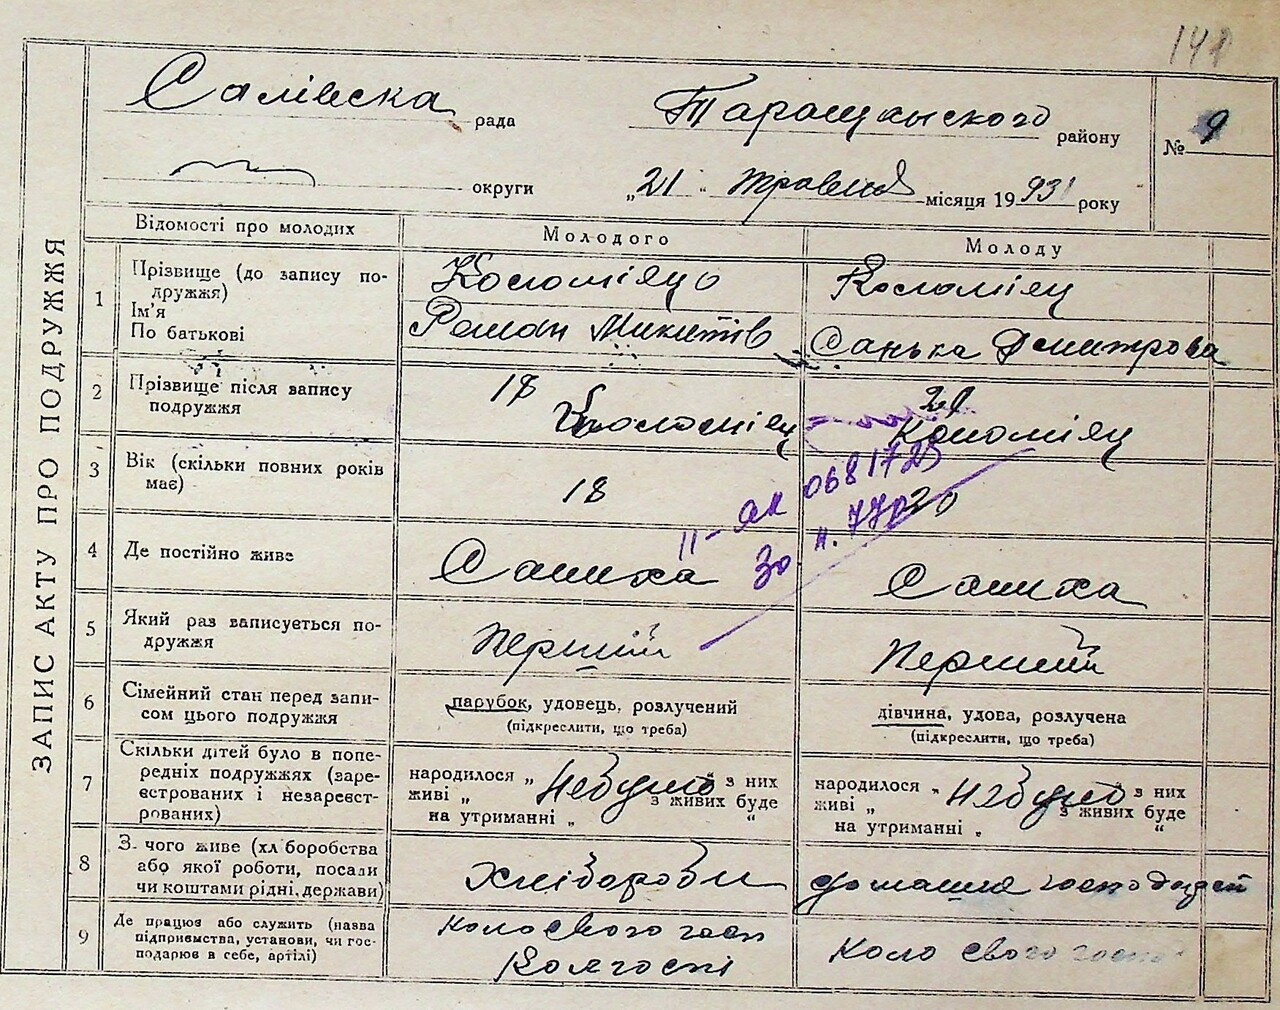 148
Салівска рада Таращанского району № 9
округи „21" травня місяця 1931 року
ЗАПИС АКТУ ПРО ПОДРУЖЖЯ
Відомості про молодих Молодого Молоду
1 Прізвище (до запису подружжя) Коломієць Коломієц
Ім'я
По батькові Роман Микитів Санька Дмитрова
2 Прізвище після запису подружжя 18 Коломієц 20 Коломієц
3 Вік (скільки повних років має) 18 20
II-ЯК 0681725
30 н. 77р
4 Де постійно живе Салиха Салиха
5 Який раз записується подружжя Перший Перший
6 Сімейний стан перед записом цього подружжя парубок, удовець, розлучений дівчина, удова, розлучена
(підкреслити, що треба) (підкреслити, що треба)
7 Скільки дітей було в попередніх подружжях (зареєстрованих і незареєстрованих)
народилося „ Небуло " з них народилося „ Небуло з них
живі „ з живих буде живі „ з живих буде
на утриманні „ " на утриманні „ "
8 З чого живе (хліборобства або якої роботи, посади чи коштами рідні, держави) Хліборобі домашне господарсті
9 Де працює або служить (назва підприємства, установи, чи господарює в себе, артілі) коло свого госп Коло свого госпо
Колгоспі